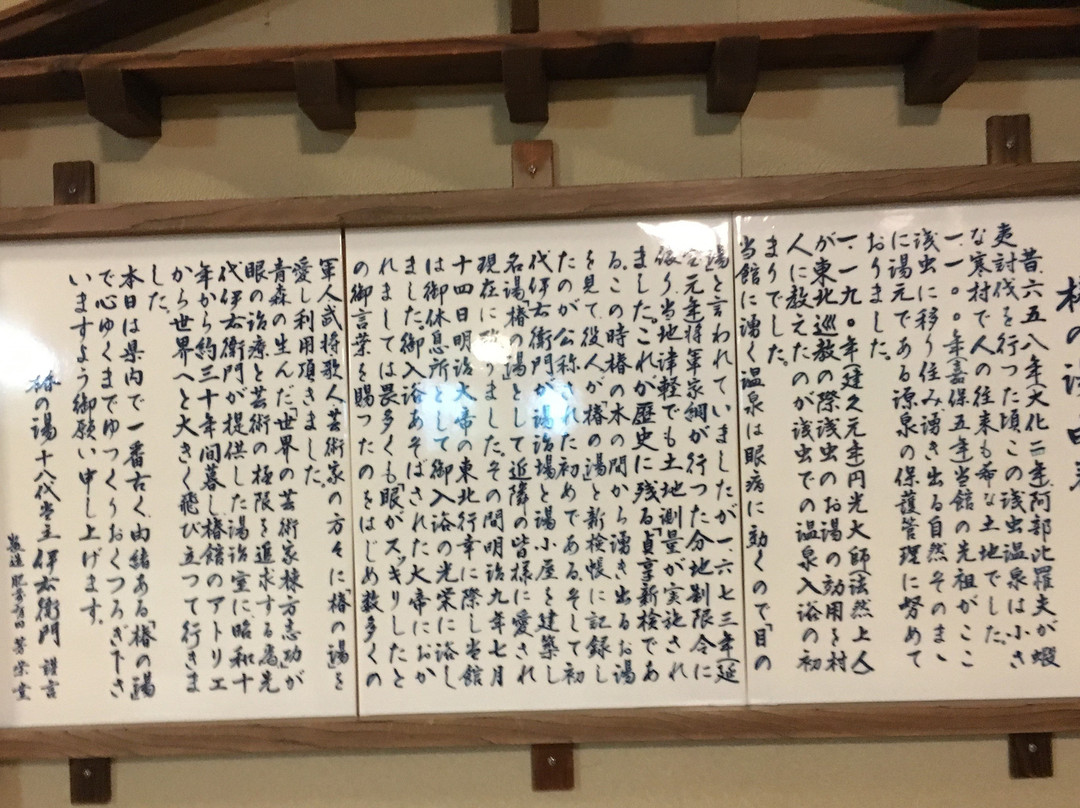 椿の湯由来
昔、六五八年(大化二年)阿部比羅夫が蝦
夷討伐を行った頃この浅虫温泉は、小さ
な寒村で人の往来も希な土地でした。
一一〇〇年嘉保五年当館の先祖がここ
浅虫に移り住み、湧き出る自然そのまゝ
に湯元である源泉の保護管理に努めて
おりました。
一一九〇年(建久元年)円光大師(法然上人)
が東北巡教の際浅虫のお湯の効用を村
人に教えたのが浅虫での温泉入浴の初
まりでした。
当館に湧く温泉は眼病に効くので「目の
湯」と言われていましたが一、六七三年(延
宝元年)将軍家綱が行った分地制限令に
依り、当地津軽でも土地測量が実施され
ました。これが歴史に残る「貞享新検」であ
る。この時椿の木の間から湧き出るお湯
を見て、役人が「椿の湯」と新検帳に記録し
たのが公称された初めである。そして初
代伊右衛門が湯治場と湯小屋を建築し
名湯「椿の湯」として近隣の皆様に愛され
現在に致りました。その間明治九年七月
十四日明治大帝の東北行幸に際し当館
は御休息所として御入浴の光栄に浴し
ました。御入浴あそばされた大帝におか
れましては畏多くも「眼がスッキリした」と
の御言葉を賜ったのをはじめ数多くの
軍人武将歌人芸術家の方々に「椿の湯」を
愛し利用頂きました。
青森の生んだ「世界の芸術家棟方志功」が
眼の治療と芸術の極限を追求する為先
代伊右衛門が提供した湯治室に、昭和十
年から約三十年間暮し椿館のアトリエ
から世界へと大きく飛び立って行きま
した。
本日は県内で一番古く、由緒ある「椿の湯」
で心ゆくまでゆっくりおくつろぎ下さ
いますよう御願い申し上げます。
椿の湯十八代当主 伊右衛門 謹言